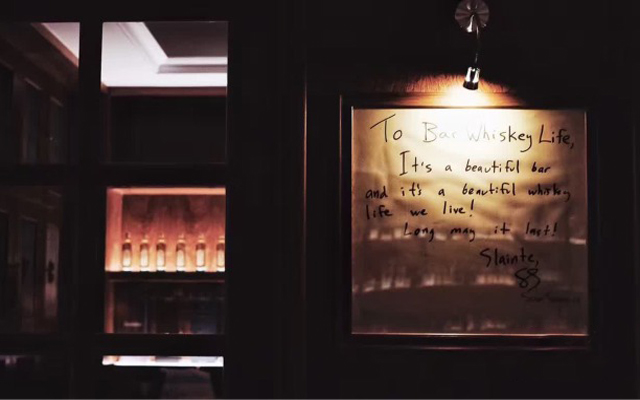 To Bar Whiskey Life,
It's a beautiful bar
and it's a beautiful whiskey
life we live!
Long may it last!
Slainte,